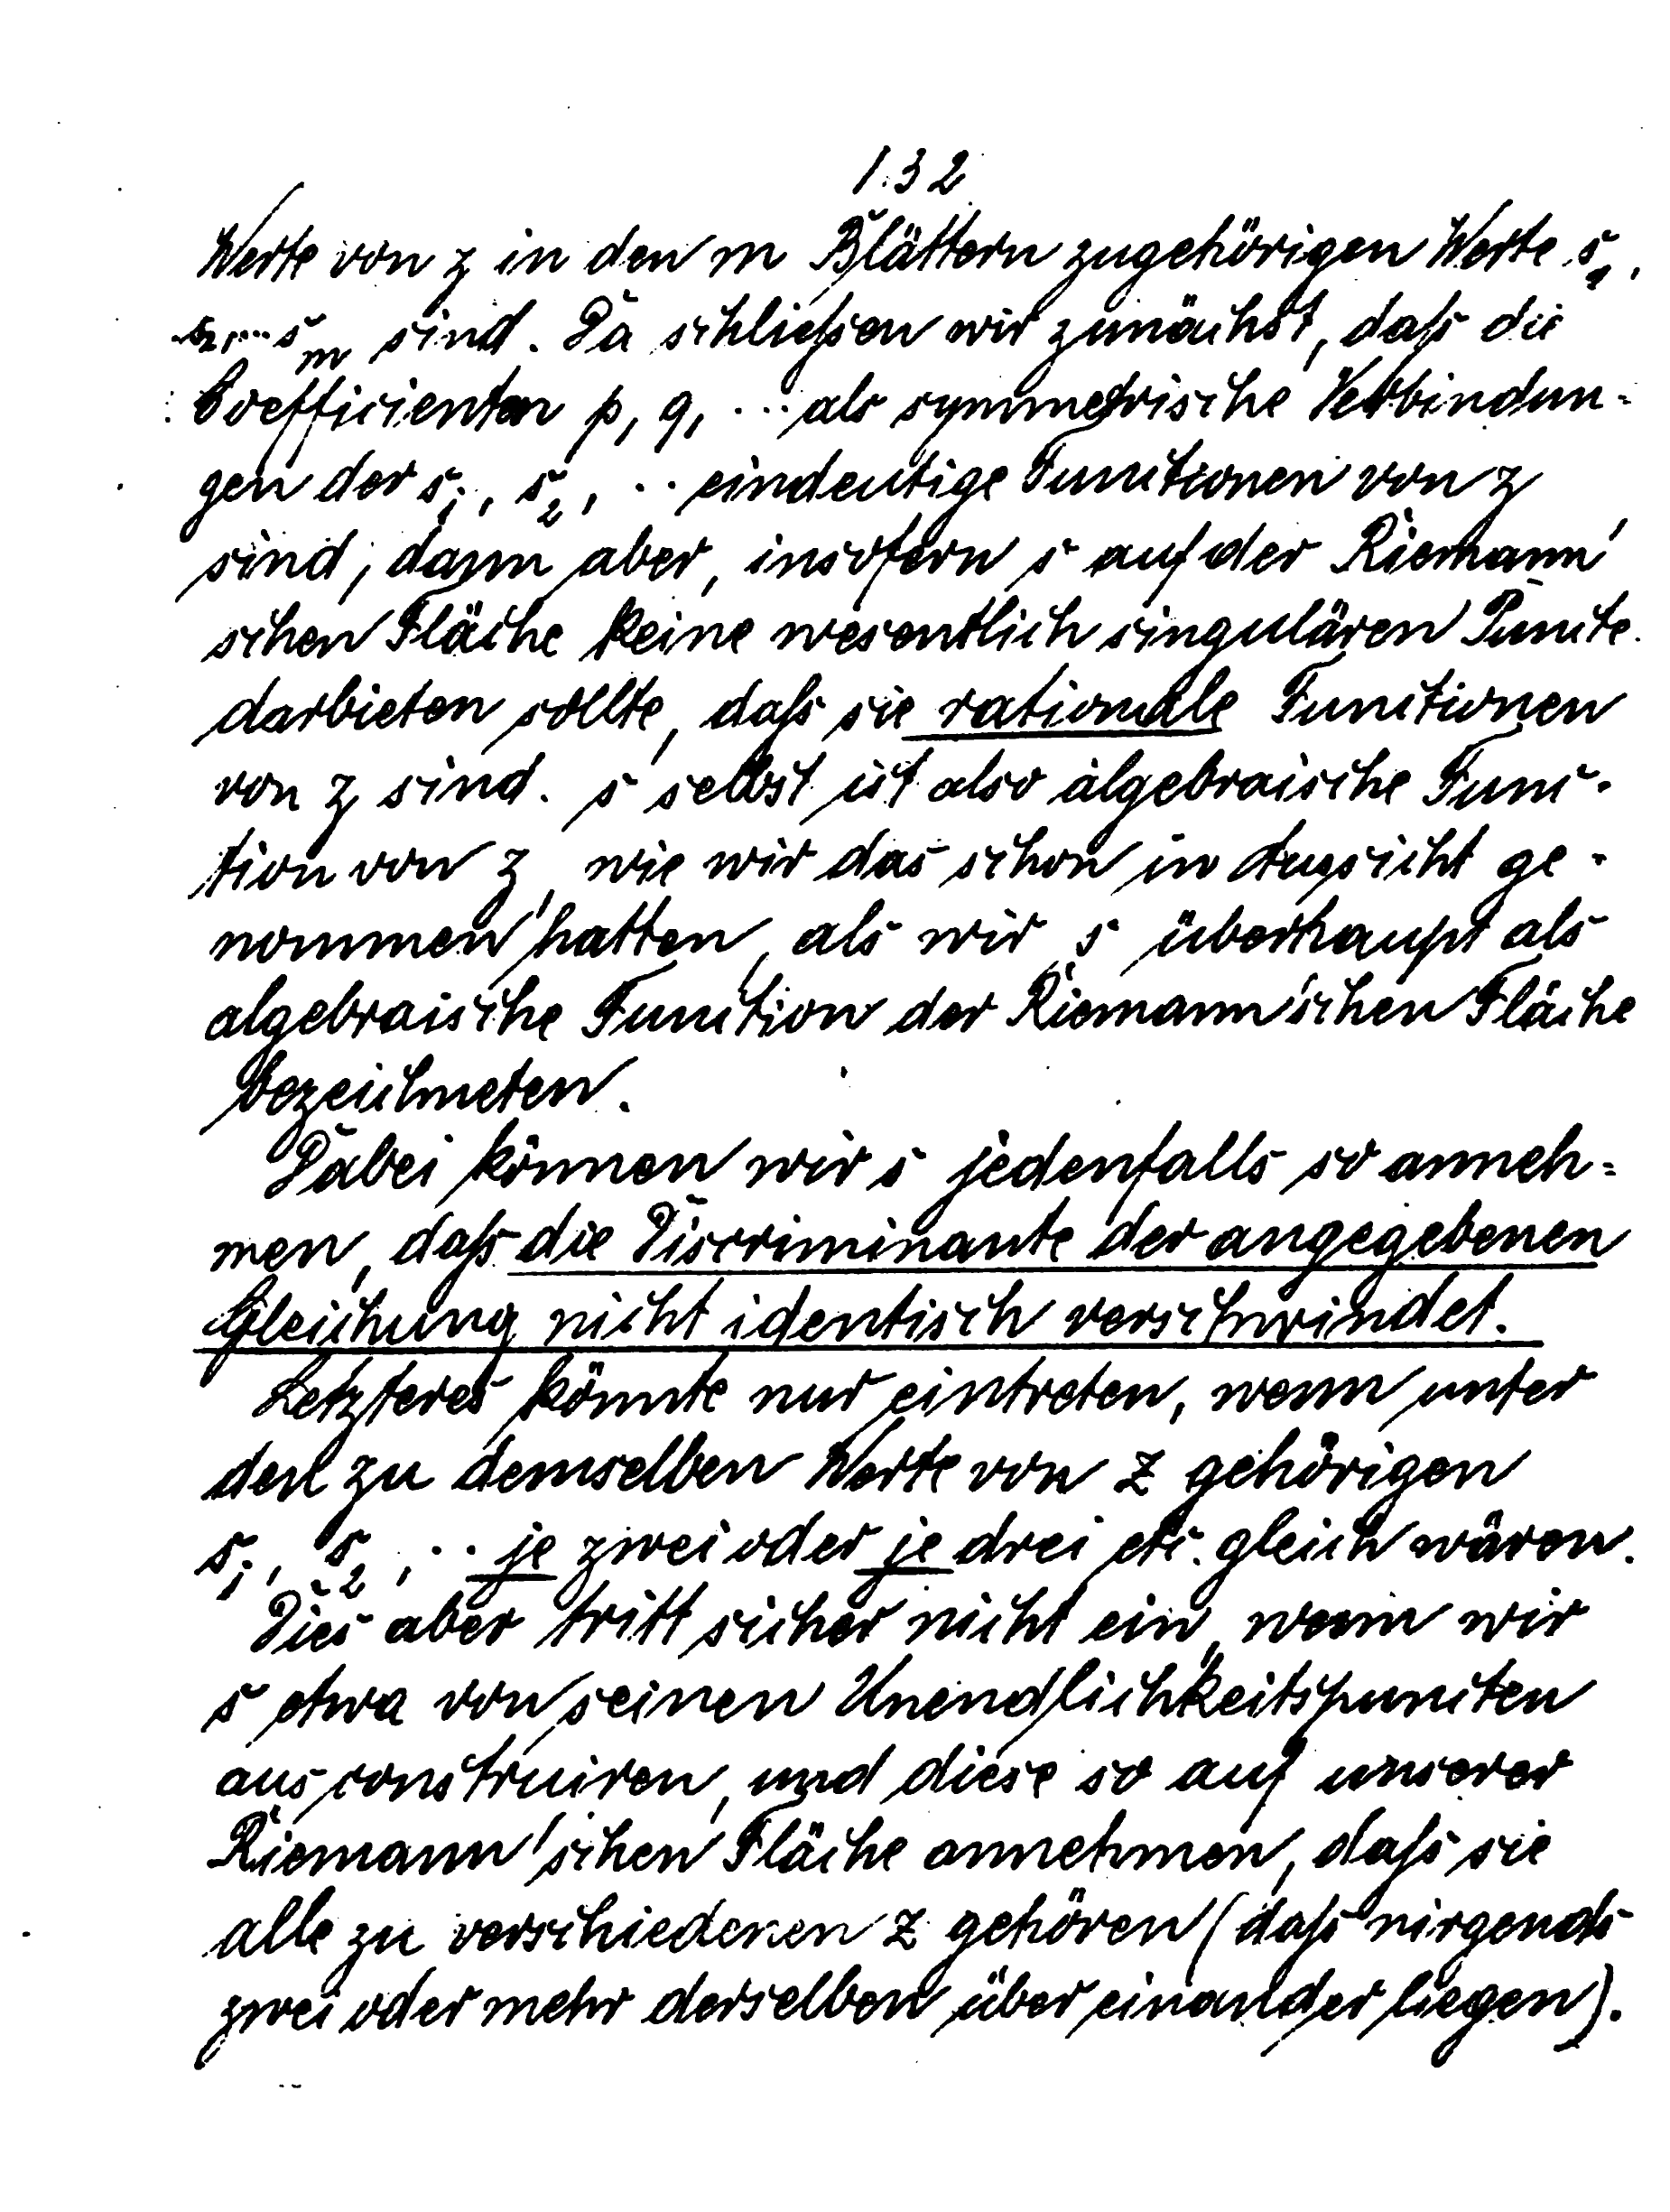 132
Werte von z in den m Blättern zugehörigen Werte s₁,
s₂, ... sₘ sind. Da schließen wir zunächst, daß die
Coefficienten p, q, ... als symmetrische Verbindun-
gen der s₁, s₂, .. eindeutige Functionen von z
sind, dann aber, insofern s auf der Riemann'
schen Fläche keine wesentlich singulären Puncte
darbieten sollte, daß sie rationale Functionen
von z sind. s selbst ist also algebraische Func-
tion von z, wie wir das schon in Aussicht ge-
nommen hatten, als wir s überhaupt als
algebraische Function der Riemann'schen Fläche
bezeichneten.
Dabei können wir s jedenfalls so anneh=
men, daß die Discriminante der angegebenen
Gleichung nicht identisch verschwindet.
Letzteres könnte nur eintreten, wenn unter
den zu demselben Werte von z gehörigen
s₁, s₂, .. je zwei oder je drei etc. gleich wären.
Dies aber tritt sicher nicht ein, wenn wir
s etwa von seinen Unendlichkeitspuncten
aus construiren, und diese so auf unserer
Riemann'schen Fläche annehmen, daß sie
alle zu verschiedenen z gehören (daß nirgends
zwei oder mehr derselben über einander liegen).